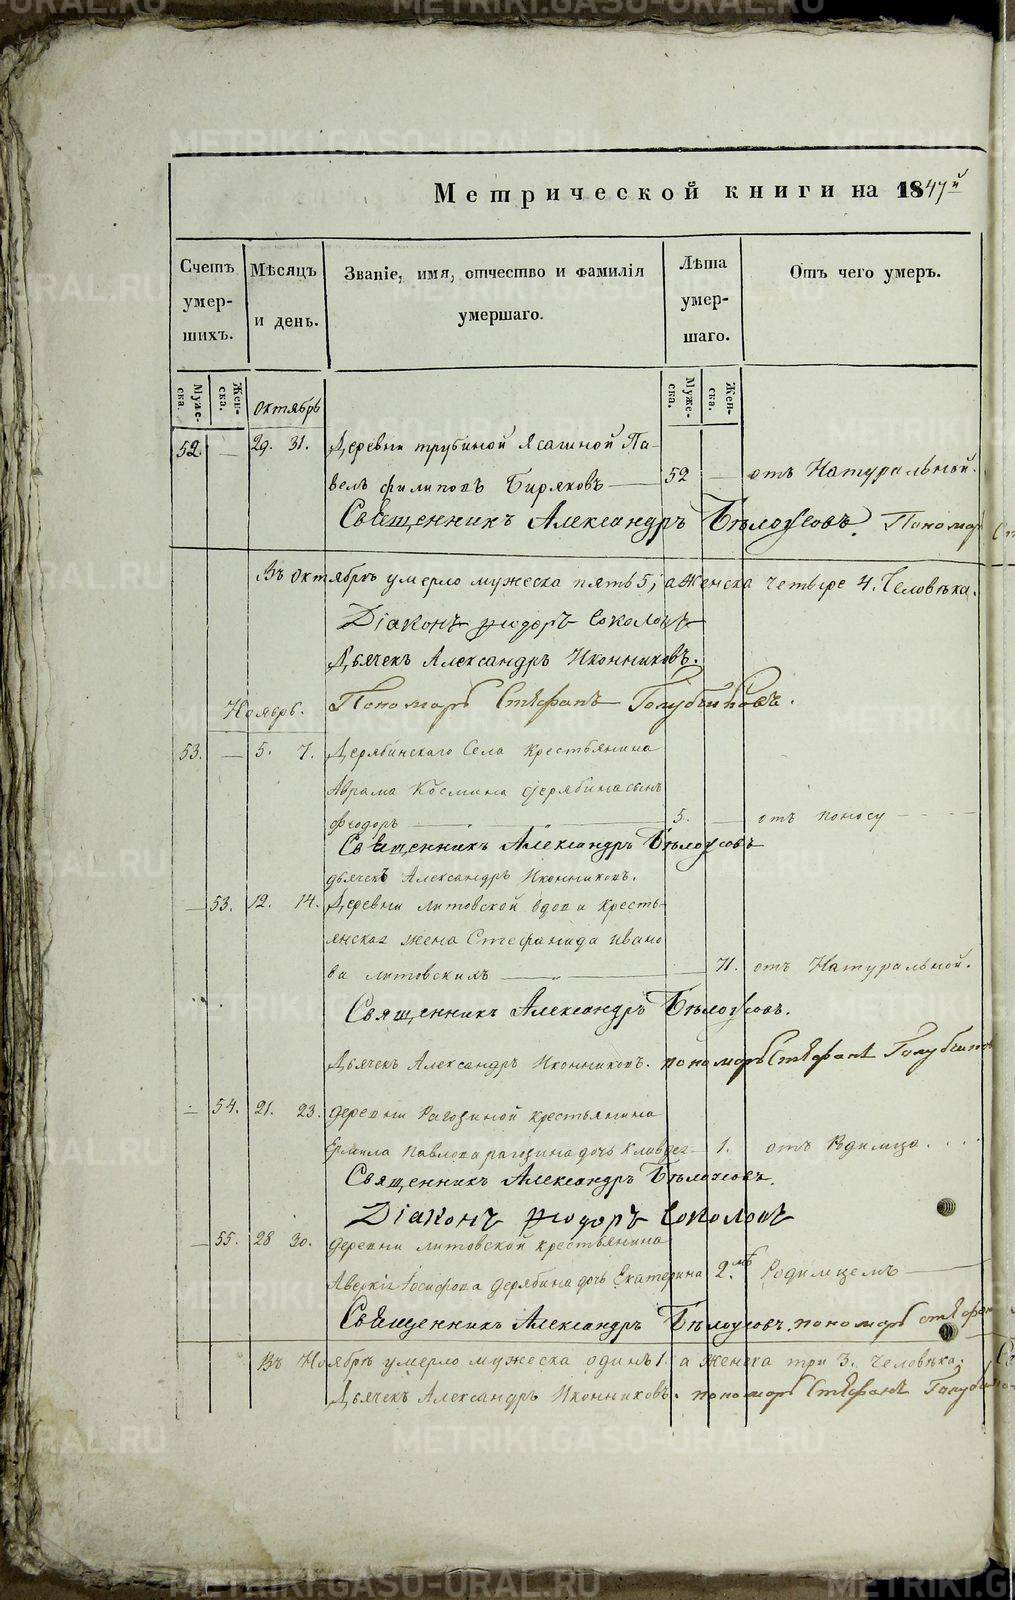 METRIKI.GASO-URAL.RU
Метрической книги на 1847й
Счетъ умер- шихъ.
Мѣсяцъ и день.
Званіе, имя, отчество и фамилія умершаго.
Лѣта умер- шаго.
Отъ чего умеръ.
Муже- ска.
Жен- ска.
Муже- ска.
Жен- ска.
Октябрь
52. — 29. 31. Деревни Трубиной Ясашной Па-
велъ Филиповъ Биряковъ — 52 — отъ Натуральной.
Священникъ Александръ Бѣлоусовъ. Пономар
Въ Октябрѣ умерло мужеска пять 5, а женска четыре 4. Человѣка.
Діаконъ Ѳеодоръ Соколовъ
Дьячекъ Александръ Иконниковъ.
Ноябрь. Пономарь Стефанъ Голубчиковъ.
53. — 5. 7. Дерябинскаго Села крестьянина
Аврама Космина Дерябина сынъ
Ѳеодоръ — 5. — отъ поносу
Священникъ Александръ Бѣлоусовъ
дьячекъ Александръ Иконниковъ.
— 53. 12. 14. Деревни Литовской вдова кресть-
янская жена Стефанида Ивано
ва Литовскихъ — 71. отъ Натуральной.
Священникъ Александръ Бѣлоусовъ.
Дьячекъ Александръ Иконниковъ. пономарь Стефанъ Голубчиков
— 54. 21. 23. деревни Рагозиной крестьянина
Ермила Павлова Рагозина дочь Клавдея — 1. отъ Родимца
Священникъ Александръ Бѣлоусовъ.
Діаконъ Ѳеодоръ Соколовъ
— 55. 28 30. деревни Литовской крестьянина
Аверкія Іосифова Дерябина дочь Екатерина 2.мѣ Родимцемъ —
Священникъ Александръ Бѣлоусовъ. пономарь Стефан
Въ Ноябрѣ умерло мужеска одинъ 1. а женска три 3. человѣка.
Дьячекъ Александръ Иконниковъ. пономарь Стефанъ Голубчико